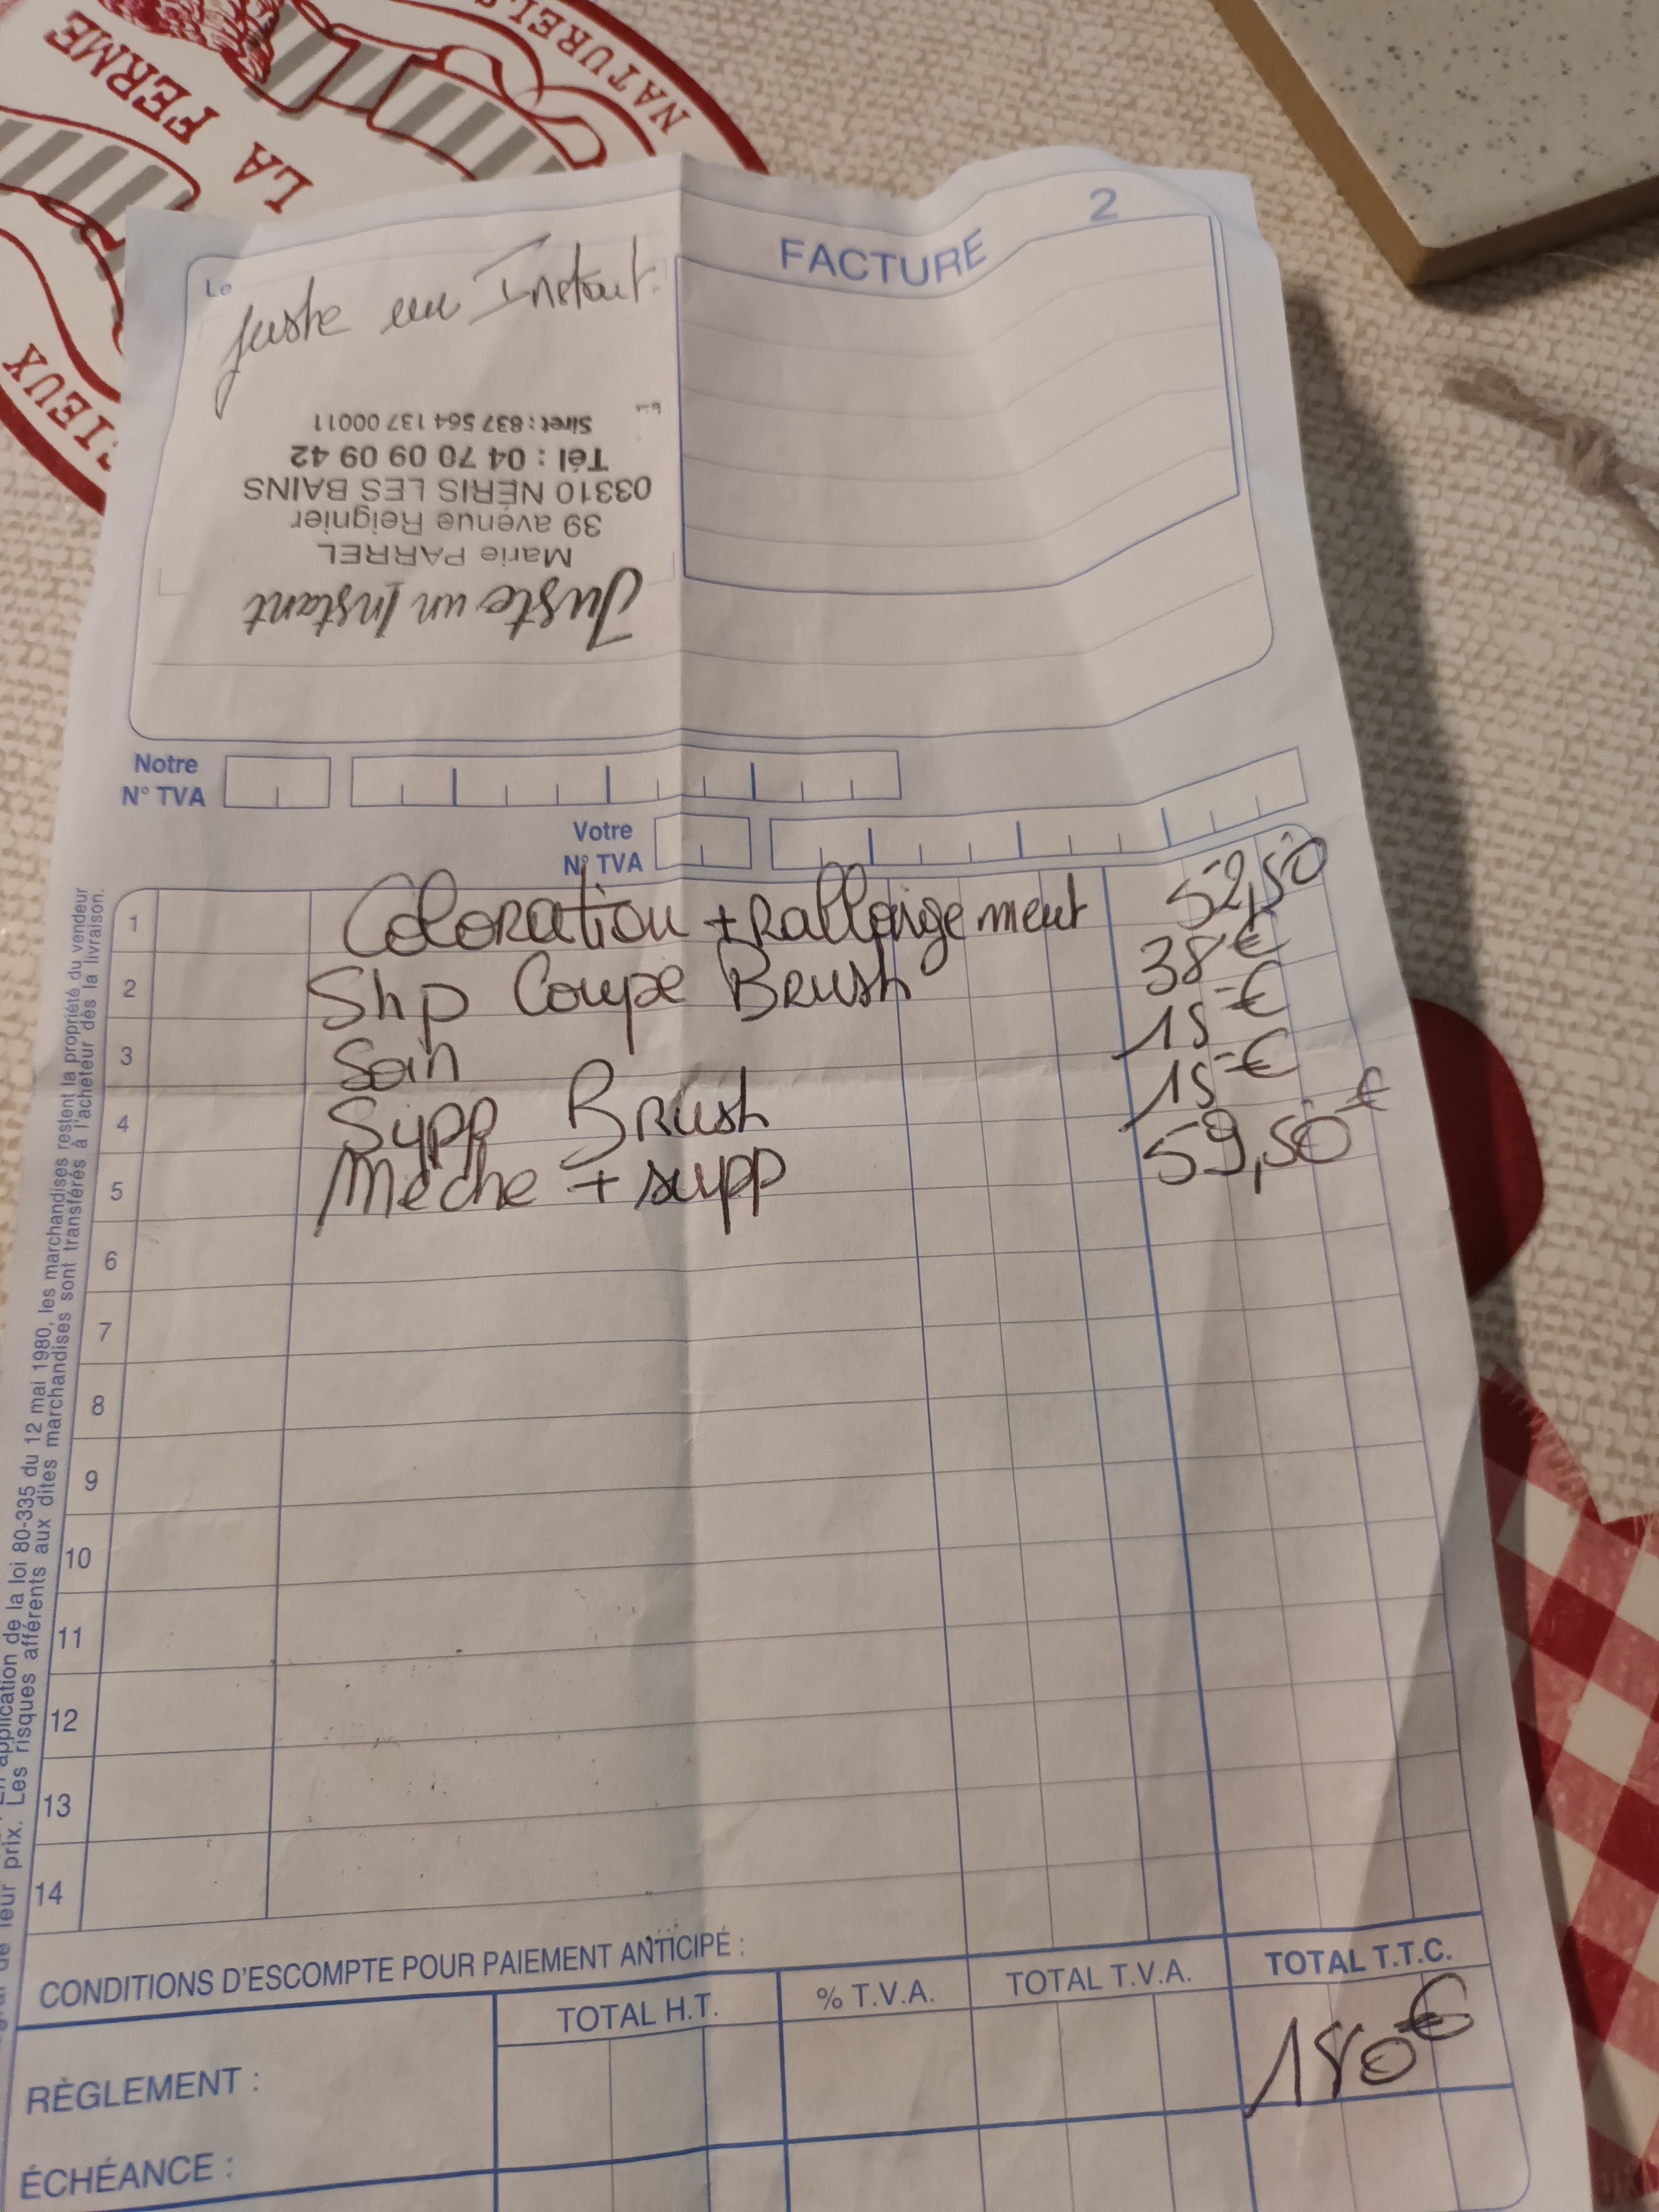 NATURELS
LA FERME
IEUX
FACTURE
2
Le
Juste un Instant
Siret : 837 564 137 00011
Tél : 04 70 09 09 42
03310 NÉRIS LES BAINS
39 avenue Reignier
Marie PARREL
Juste un Instant
Notre
N° TVA
Votre
N° TVA
1 Coloration + Rallongement 52,50
2 Shp Coupe Brush 38€
3 Soin 15-€
4 Supp Brush 15-€
5 Meche + supp 59,50€
6
7
8
9
10
11
12
13
14
application de la loi 80-335 du 12 mai 1980, les marchandises restent la propriété du vendeur
leur prix. Les risques afférents aux dites marchandises sont transférés à l'acheteur dès la livraison.
CONDITIONS D'ESCOMPTE POUR PAIEMENT ANTICIPÉ :
TOTAL H.T. % T.V.A. TOTAL T.V.A. TOTAL T.T.C.
RÈGLEMENT : 180€
ÉCHÉANCE :